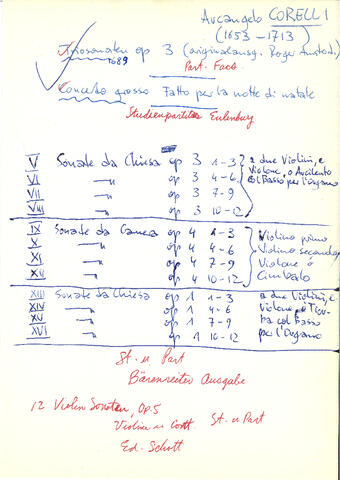 Arcangelo CORELLI
(1653 – 1713)
Triosonaten op 3 (originalausg. Roger Amsterd.)
1689
Part. Facs.
Concerto grosso Fatto per la notte di natale
Studienpartitur Eulenburg
V Sonate da Chiesa op 3 1-3
VI " op 3 4-6
VII " op 3 7-9
VIII " op 3 10-12
a due Violini, e
Violone, o Arcileuto
col Basso per l'Organo
IX Sonate da Camera op 4 1-3
X " op 4 4-6
XI " op 4 7-9
XII " op 4 10-12
Violino primo
Violino secondo
Violone o
Cimbalo
XIII Sonate da Chiesa op 1 1-3
XIV " op 1 4-6
XV " op 1 7-9
XVI " op 1 10-12
a due Violini, e
Violone, o
col Basso
per l'Organo
St. u Part
Bärenreiter Ausgabe
12 Violin Sonaten, Op. 5
Violin u Cont St. u Part
Ed. Schott